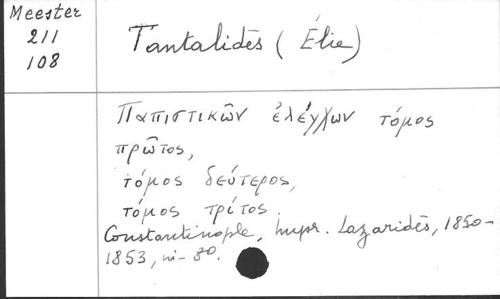 Meester
211
108
Tantalidès (Élie)
Παπιστικῶν ἐλέγχων τόμος
πρῶτος,
τόμος δεύτερος,
τόμος τρίτος.
Constantinople, impr. Lazaridès, 1850-
1853, in-8º.